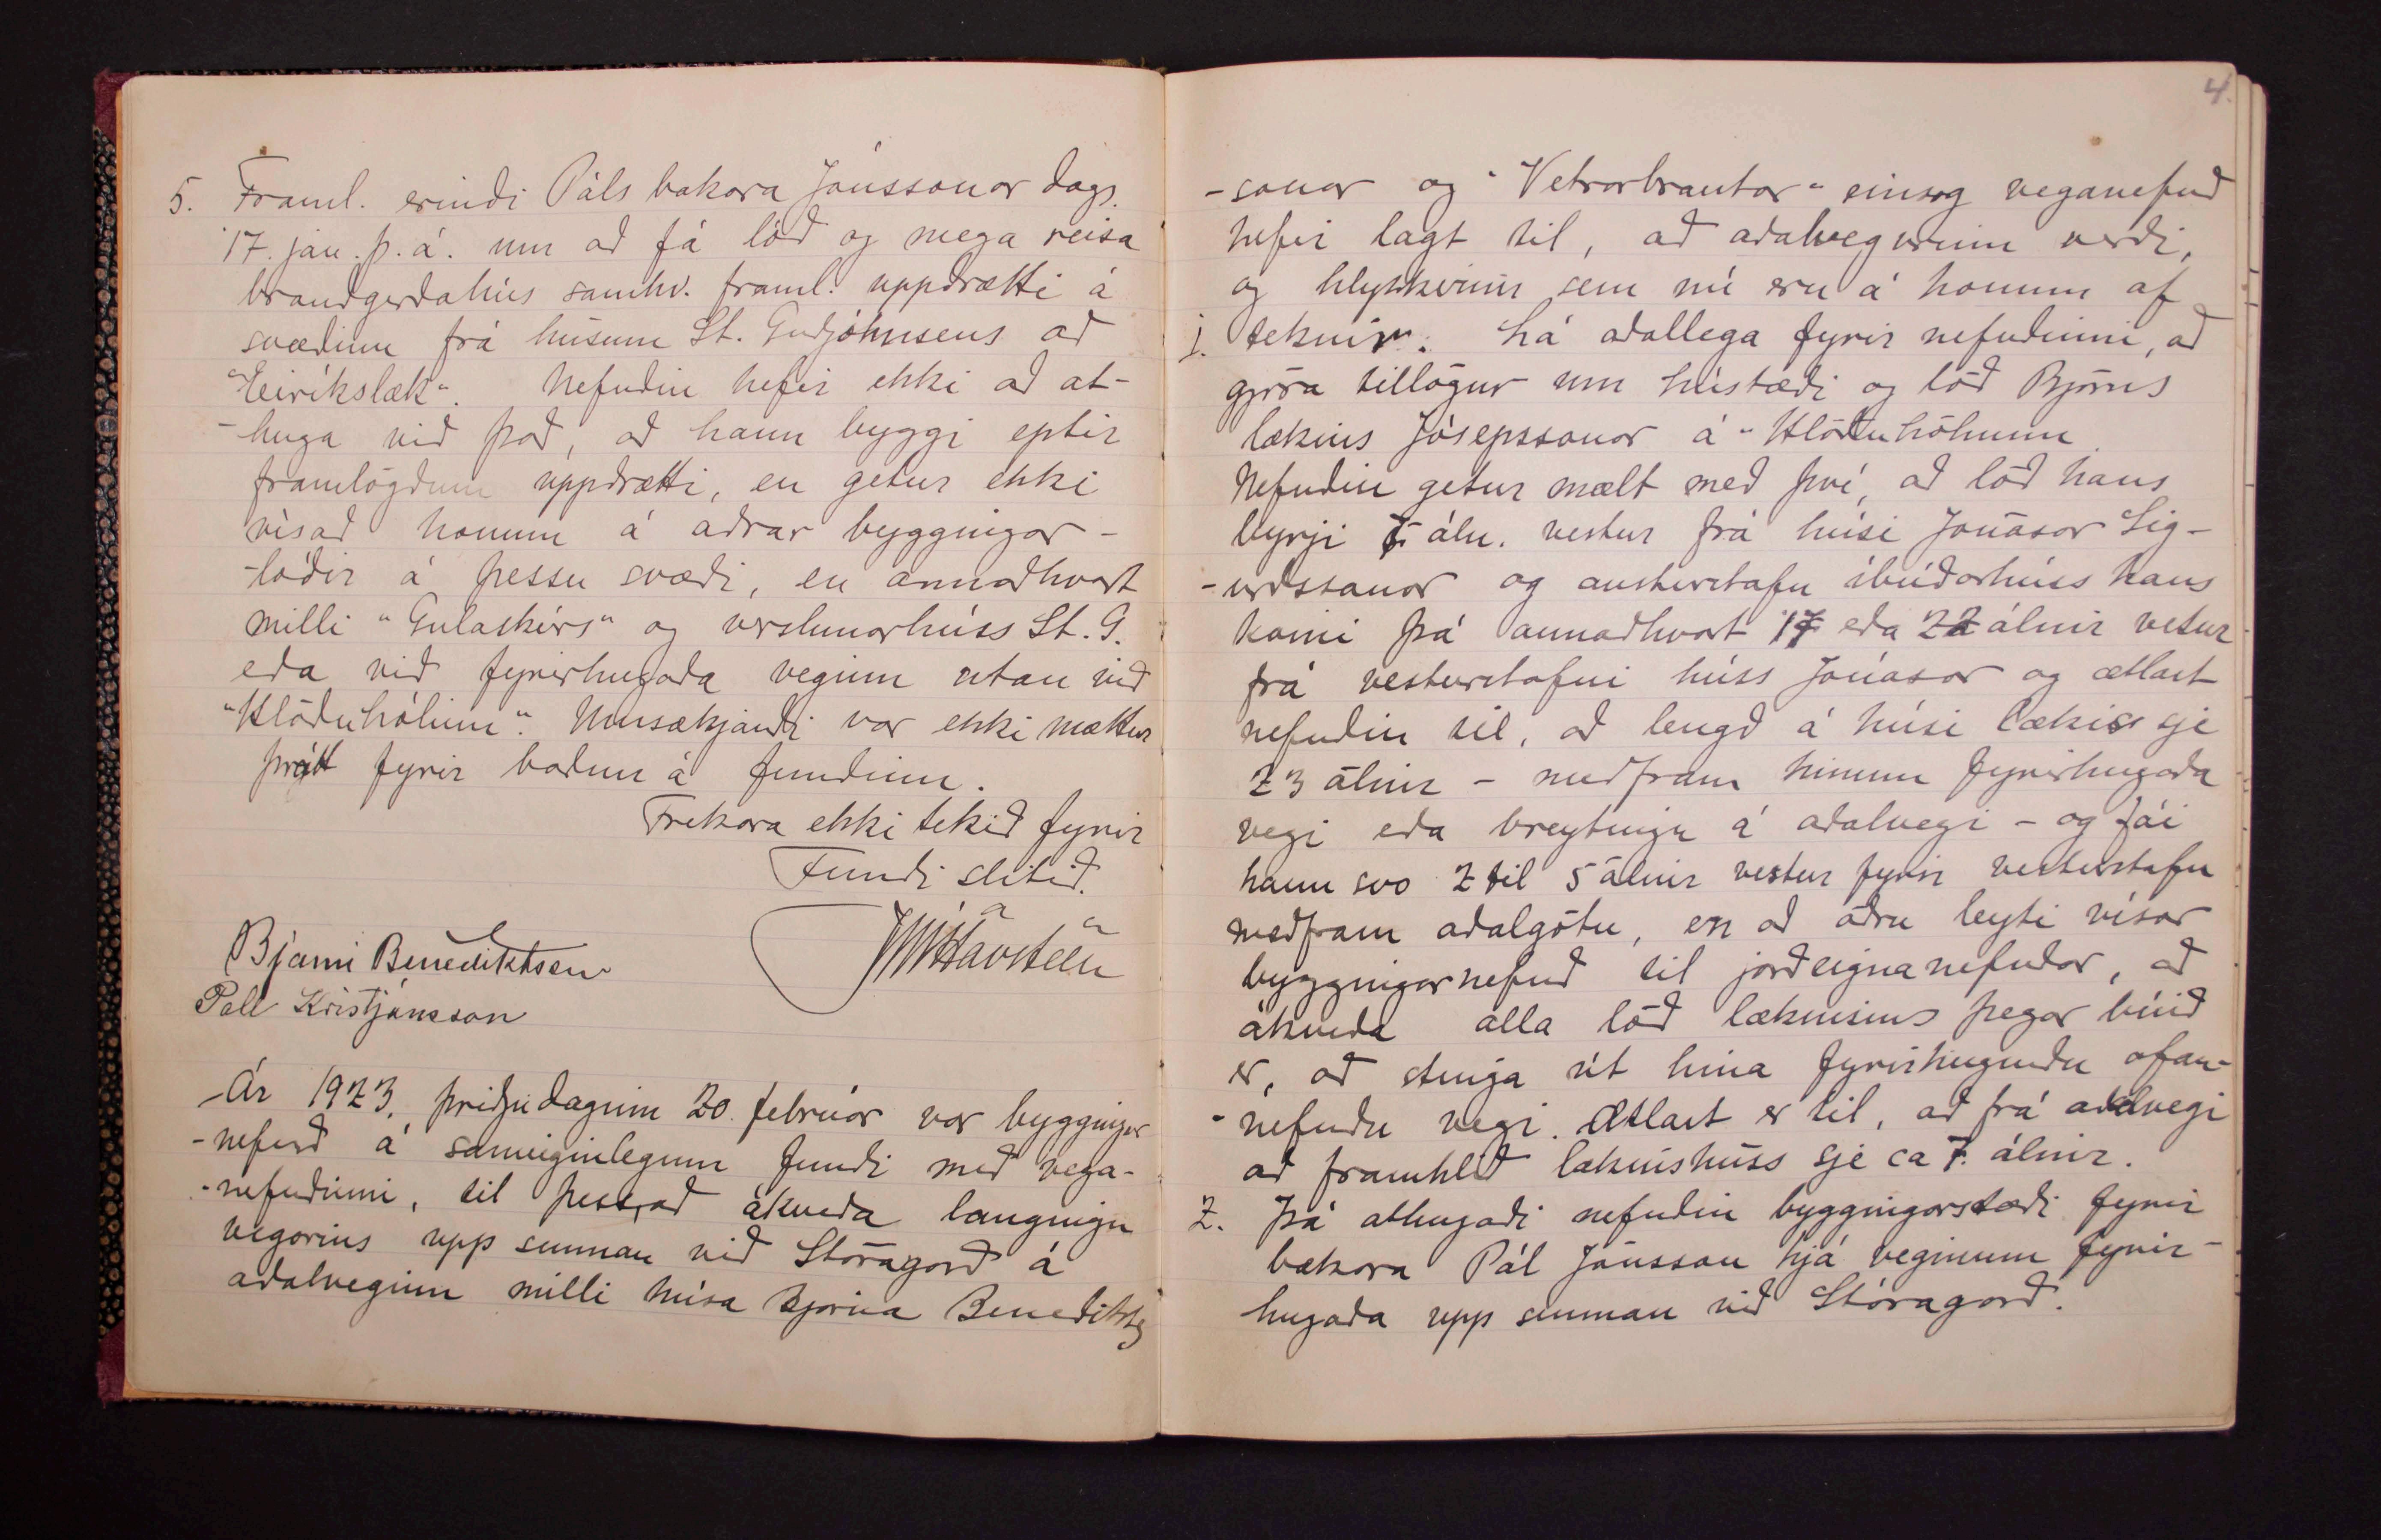 5. Framl. erindi Páls bakara Jónssonar dags.
17. jan. þ. á. um að fá lóð og mega reisa
brauðgerðahús samhv. framl. uppdrætti á
svæðinu frá húsum St. Guðjohnsens að
"Eiríkslæk". Nefndin hefir ekki að at-
-huga við það, að hann byggi eptir
framlögðum uppdrætti, en getur ekki
vísað honum á aðrar byggingar-
-lóðir á þessu svæði, en annaðhvort
milli "Gulaskúrs" og verslunarhúss St. G.
eða við fyrirhugaða veginn utan við
"Hlöðuhólinn". Umsækjandi var ekki mættur
þrátt fyrir boðun á fundinn.
Frekara ekki tekið fyrir
Fundi slitið.
JHavsteen
Bjarni Benediktsson
Páll Kristjánsson
Ár 1923, þriðjudaginn 20. febrúar var byggingar
-nefnd á sameiginlegum fundi með vega-
-nefndinni, til þess, að ákveða langningu
vegarins upp sunnan við Stóragarð á
aðalveginn milli húsa Bjarna Benedikts
4.
-sonar og "Vetrarbrautar" einsog veganefnd
hefir lagt til, að aðalvegurinn verði,
og hlykkirnir sem nú eru á honum af
1. teknir. Lá aðallega fyrir nefndinni, að
gjöra tillögur um hústæði og lóð Björns
læknis Jósepssonar á "Hlöðuhólnum
Nefndin getur mælt með því, að lóð hans
byrji 7 áln. vestur frá húsi Jónasar Sig-
-urðssonar og austurstafn íbúðarhúss hans
komi þá annaðhvort 17 eða 22 álnir vestur
frá vesturstafni húss Jónasar og ætlast
nefndin til, að lengd á húsi læknis sje
23 álnir - meðfram hinum fyrirhugaða
vegi eða breytingu á aðalvegi - og fái
hann svo 2 til 5 álnir vestur fyrir vesturstafn
meðfram aðalgötu, en að öðru leyti vísar
byggingarnefnd til jarðeignanefndar, að
ákveða alla lóð læknisins þegar búið
er, að stinga út hina fyrirhuguðu ofan-
-nefndu vegi. Ætlast er til, að frá aðalvegi
að framhlið læknishúss sje ca 7. álnir.
2. Þá athugaði nefndin byggingarstæði fyrir
bakara Pál Jónsson hjá veginum fyrir-
hugaða upp sunnan við Stóragarð.